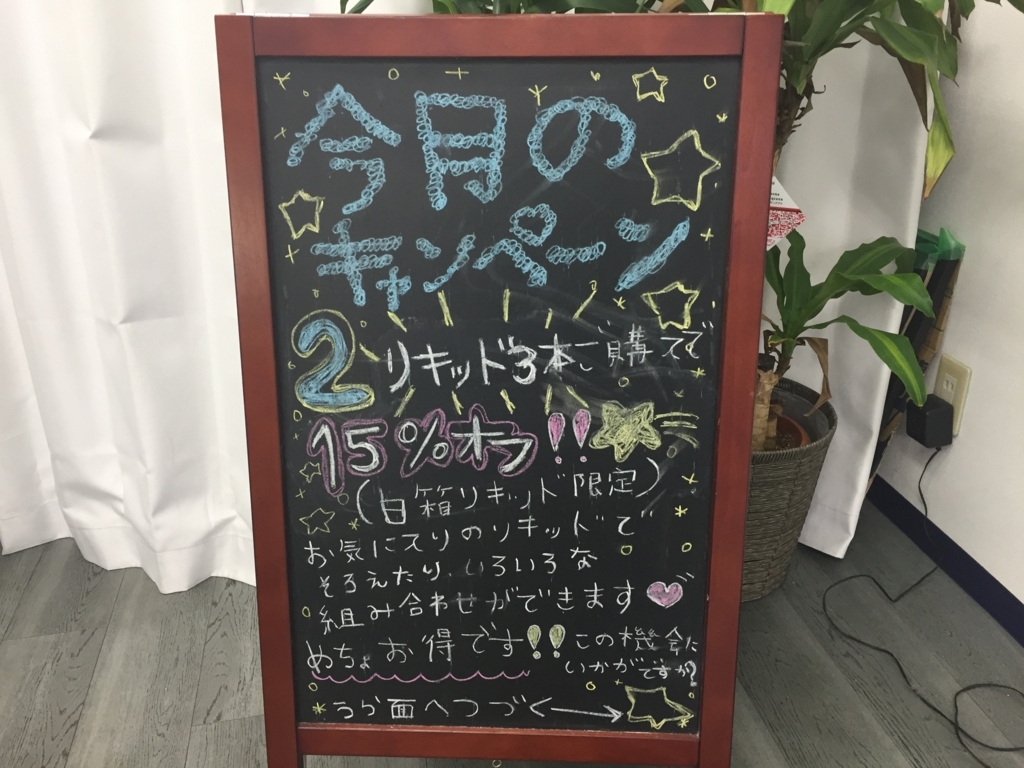 今月の
キャンペーン
2 リキッド3本ご購入で
15%オフ!!
(白箱リキッド限定)
お気に入りのリキッドで
そろえたり、いろいろな
組み合わせができます
めちょお得です!! この機会に
いかがですか?
うら面へつづく→